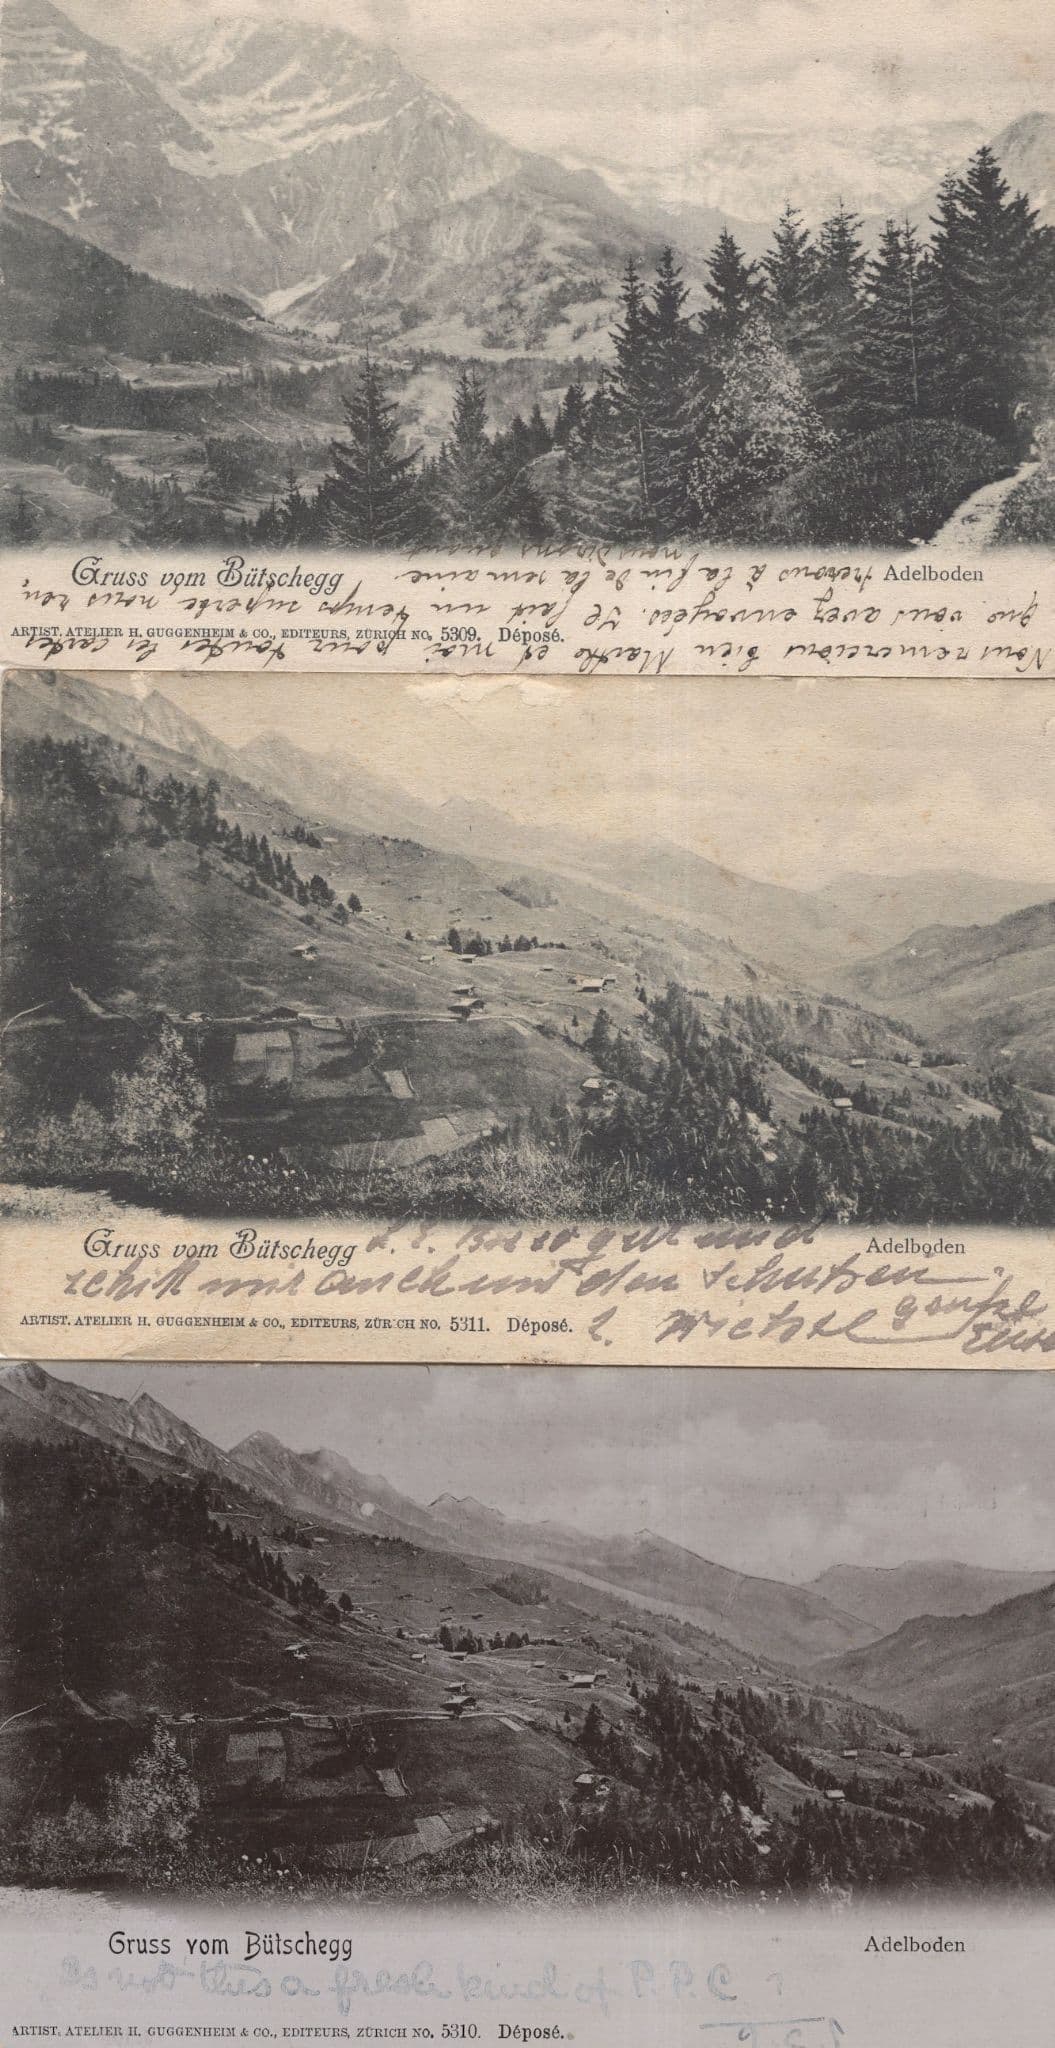 Gruss vom Bütschegg
Adelboden
ARTIST. ATELIER H. GUGGENHEIM & CO., EDITEURS, ZÜRICH NO. 5309. Déposé.
Nous remercions bien Marthe et moi pour toutes les cartes
que vous avez envoyées. Il fait un temps superbe nous ren
trerons à la fin de la semaine.
nous
Gruss vom Bütschegg
Adelboden
gut und
schik mir auch und den
ARTIST. ATELIER H. GUGGENHEIM & CO., EDITEURS, ZÜRICH NO. 5311. Déposé.
Gruss vom Bütschegg
Adelboden
Is not this a fresh kind of P.P.C ?
ARTIST. ATELIER H. GUGGENHEIM & CO., EDITEURS, ZÜRICH NO. 5310. Déposé.